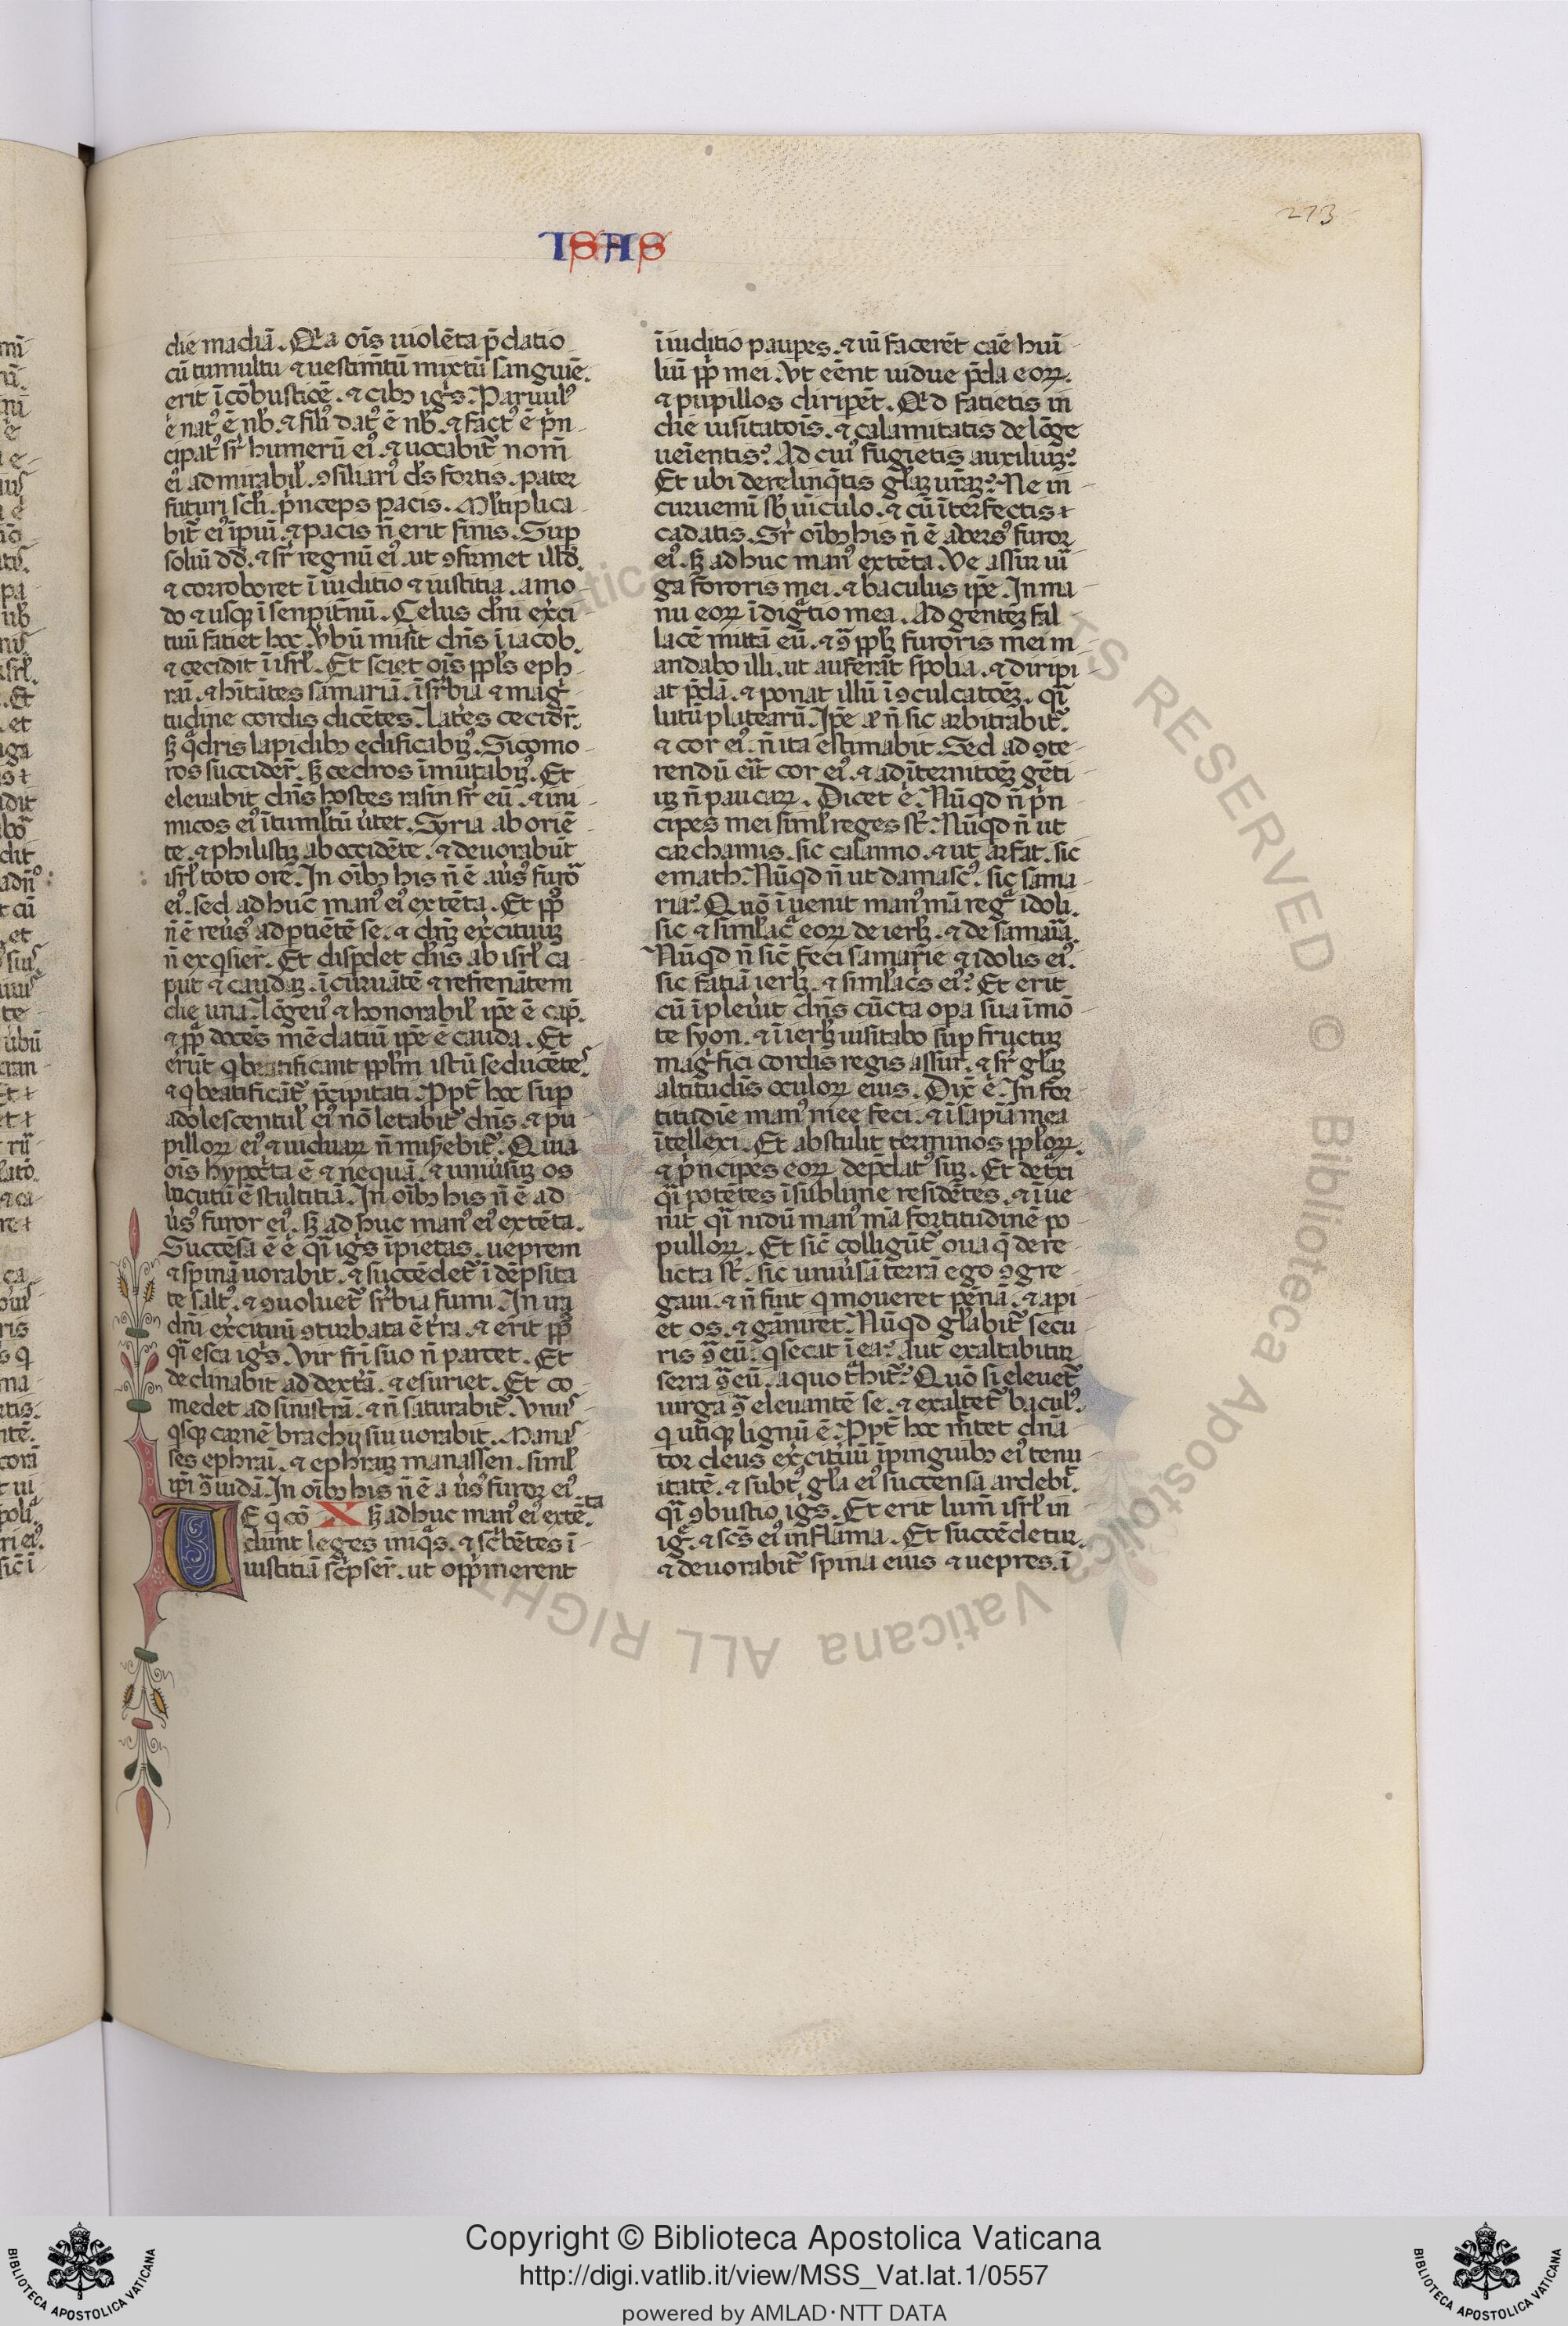 273
ISAS
die madiā. Qr̄a oīs uiolēta p̄datio
cū tumultu ⁊ uestim̄tū mixtū sanguiē.
erit ī cōbustiōē. ⁊ cibꝫ ig̅s. Paruul᷒
ē nat᷒ ē nb̄. ⁊ fili᷒ dat᷒ ē nb̄. ⁊ fact᷒ ē p̄n
cipat᷒ sr̄ humerū ei᷒. ⁊ uocabit᷑ nom̄
ei᷒ admirabil̛. ꝯsiliari᷒ d̄s fortis. pater
futuri scl̄i. p̄nceps pacis. Ml̛tiplica-
bit᷑ ei᷒ īpiū. ⁊ pacis n̄ erit finis. Sup
soliū dd̄. ⁊ sr̄ regnū ei᷒. ut ꝯfirmet illd̄.
⁊ corroboret ī iuditio ⁊ iustitia. amo-
do ⁊ usqꝫ ī senpit̄nū. Celus dn̄i ex̄ci
tuū fatiet hoc. v̄bū misit dn̄s ī iacob.
⁊ cecidit ī isrl̄. Et sciet oīs ppl̄s eph-
raī. ⁊ hītātes samariā. ī suꝑbia ⁊ mag̅-
tudine cordis dicētes. Lat̄es cecidr̄.
sꝫ q̄dris lapidibꝫ edificabi᷒. Sicomo-
ros succider̄. sꝫ cedros īmutabi᷒. Et
eleuabit dn̄s hostes rasin sr̄ eū. ⁊ ini-
micos ei᷒ ī tuml̛tū ūtet. Syria ab oriē-
te. ⁊ philistiꝫ ab occidēte. ⁊ deuorabūt
isrl̄ toto ore. In oībꝫ his n̄ ē aūs᷒ furō
ei᷒. sed ad huc man᷒ ei᷒ extēta. Et ppl̄s
n̄ ē reūs᷒ ad ꝑtiētē se. ⁊ dn̄ꝫ ex̄cituuꝫ
n̄ exq̄sier̄. Et dispdet dn̄s ab isrl̄ ca
put ⁊ caudaꝫ. īcuruātē ⁊ refrenātem
die una. lōgeu᷒ ⁊ honorabil̛ ip̄e ē cap̄.
⁊ pp̄ docēs mēdatiū ip̄e ē cauda. Et
erūt q beatificant ppl̄m istū seducētes
⁊ q beatificāt᷑ p̄cipitati. Ppt̄ hoc sup
adolescentul̛ ei᷒ nō letabit᷑ dn̄s. ⁊ pu
pilloꝝ ei᷒ ⁊ uiduaꝝ n̄ mis̄ebit᷑. Quia
oīs hypoc̄ta ē ⁊ nequā. ⁊ uniūsuꝫ os
locutū ē stultitiā. In oībꝫ his n̄ ē ad
ūs᷒ furor ei᷒. sꝫ ad huc man᷒ ei᷒ extēta.
Succēsa ē ē qi᷒ ig̅s īpietas. ueprem
⁊ spinā uorabit. ⁊ succēdet᷑ ī dēpsita
te salt᷒. ⁊ ꝯuoluet᷑ suꝑbia fumi. In ira
dn̄i ex̄cituū ꝯturbata ē t̄ra. ⁊ erit ppl̄s
qi᷒ esca ig̅s. Vir fr̄i suo n̄ parcet. Et
declinabit ad dextā. ⁊ esuriet. Et co-
medet ad sinistrā. ⁊ n̄ saturabit᷑. Vnus
qisqꝫ carnē brachij sui uorabit. Manas
ses ephraī. ⁊ ephraiꝫ manassen. siml̛
ip̄i ꝯ̄ iudā. In oībꝫ his n̄ ē aūs᷒ furor ei᷒
sꝫ ad huc man᷒ ei᷒ extē.ta
X
VE q cō
dunt leges iniq̄s. ⁊ sc̄bētes ī-
iustitiā sc̄pser̄. ut opp̄merent
ī iuditio pauꝑes. ⁊ uī facerēt cāe hui-
liū pp̄l mei. Vt eēnt uidue p̄da eoꝝ.
⁊ pupillos diriperēt. Qd fatietis in
die uisitatoīs. ⁊ calamitatis de lōge
ueīentis? Ad cui᷒ fugietis auxiliuꝫ?
Et ubi derelinq̄tis gl̄aꝫ ur̄aꝫ? Ne in
curuemi sb̄ uīculo. ⁊ cū īterfectis ⁊
cadatis. Sr̄ oībꝫ his n̄ ē av̄ers᷒ furor
ei᷒. sꝫ ad huc man᷒ extēta. Ve assur ui
ga fororis mei. ⁊ baculus ip̄e. In ma-
nu eoꝝ īdig̅tio mea. Ad gentēꝫ fal
lacē mittā eū. ⁊ ꝯ̄ ppl̄ꝫ furoris mei m
andabo illi. ut auferāt spolia. ⁊ diripi-
at p̄dā. ⁊ ponat illū ī ꝯculcatoēꝫ. qi᷒
lutū platearū. Ip̄e aū n̄ sic arbitrabit᷑.
⁊ cor ei᷒. n̄ ita estimabit. Sed ad ꝯte-
rendū erit cor ei᷒. ⁊ ad īternitoēꝫ gēti-
uꝫ n̄ paucaꝝ. Dicet ē. Nūqd n̄ p̄n-
cipes mei siml̛ reges st̄. Nūqd n̄ ut
carchamis. sic calanno. ⁊ ut arfat. sic
emath. Nūqd n̄ ut damasc᷒. sic sama-
ria? Quō īuenit man᷒ m̄a reg̅ idoli.
sic ⁊ siml̛ac̄ eoꝝ de ierlꝫ. ⁊ de samaria.
Nūqd n̄ sic̄ feci samarie ⁊ idolis ei᷒.
sic fatiā ierlꝫ. ⁊ siml̛ac̄s ei᷒? Et erit
cū īpleuit dn̄s cūcta oꝑa sua ī mō-
te syon. ⁊ ī ierlꝫ uisitabo sup fructuꝫ
mag̅fici cordis regis assur. ⁊ sr̄ gl̄aꝫ
altitudīs oculoꝝ eius. Dix̄ ē. In for-
titudīe man᷒ mee feci. ⁊ ī sapīa mea
ītellexi. Et abstulit terminos ppl̄oꝝ.
⁊ p̄ncipes eoꝝ dep̄dat᷒ suꝫ. Et det̄xi
qi᷒ potētes ī sublime residētes. ⁊ īue
nit qi᷒ nidū man᷒ m̄a fortitudinē po-
pulloꝝ. Et sic̄ colligūt᷑ oua q̄ dere-
licta st̄. sic uniūsā terrā ego ꝯgre-
gaui. ⁊ n̄ fuit q moueret pēnā. ⁊ api-
et os. ⁊ gāniret. Nūqd gl̄abit᷑ secu
ris ꝯ̄ eū. q secat ī ea? Aut exaltabitur
serra ꝯ̄ eū. a quo t̄hit᷑? Quō si eleuet᷑
uirga ꝯ̄ eleuantē se. ⁊ exaltet᷑ bacul᷒.
q utiqꝫ lignū ē. Ppt̄ hoc m̄tet dn̄a
tor deus ex̄cituū ī pinguibꝫ ei᷒ tenu-
itatē. ⁊ subt᷒ gl̄a ei᷒ succensa ardebi᷑
qi᷒ ꝯbustio ig̅s. Et erit lum̄ isrl̄ in
ig̅. ⁊ sc̄s ei᷒ in flāma. Et succēdetur.
⁊ deuorabit᷑ spina eius ⁊ uepres. ī
Copyright © Biblioteca Apostolica Vaticana
http://digi.vatlib.it/view/MSS_Vat.lat.1/0557
powered by AMLAD·NTT DATA
BIBLIOTECA APOSTOLICA VATICANA
BIBLIOTECA APOSTOLICA VATICANA